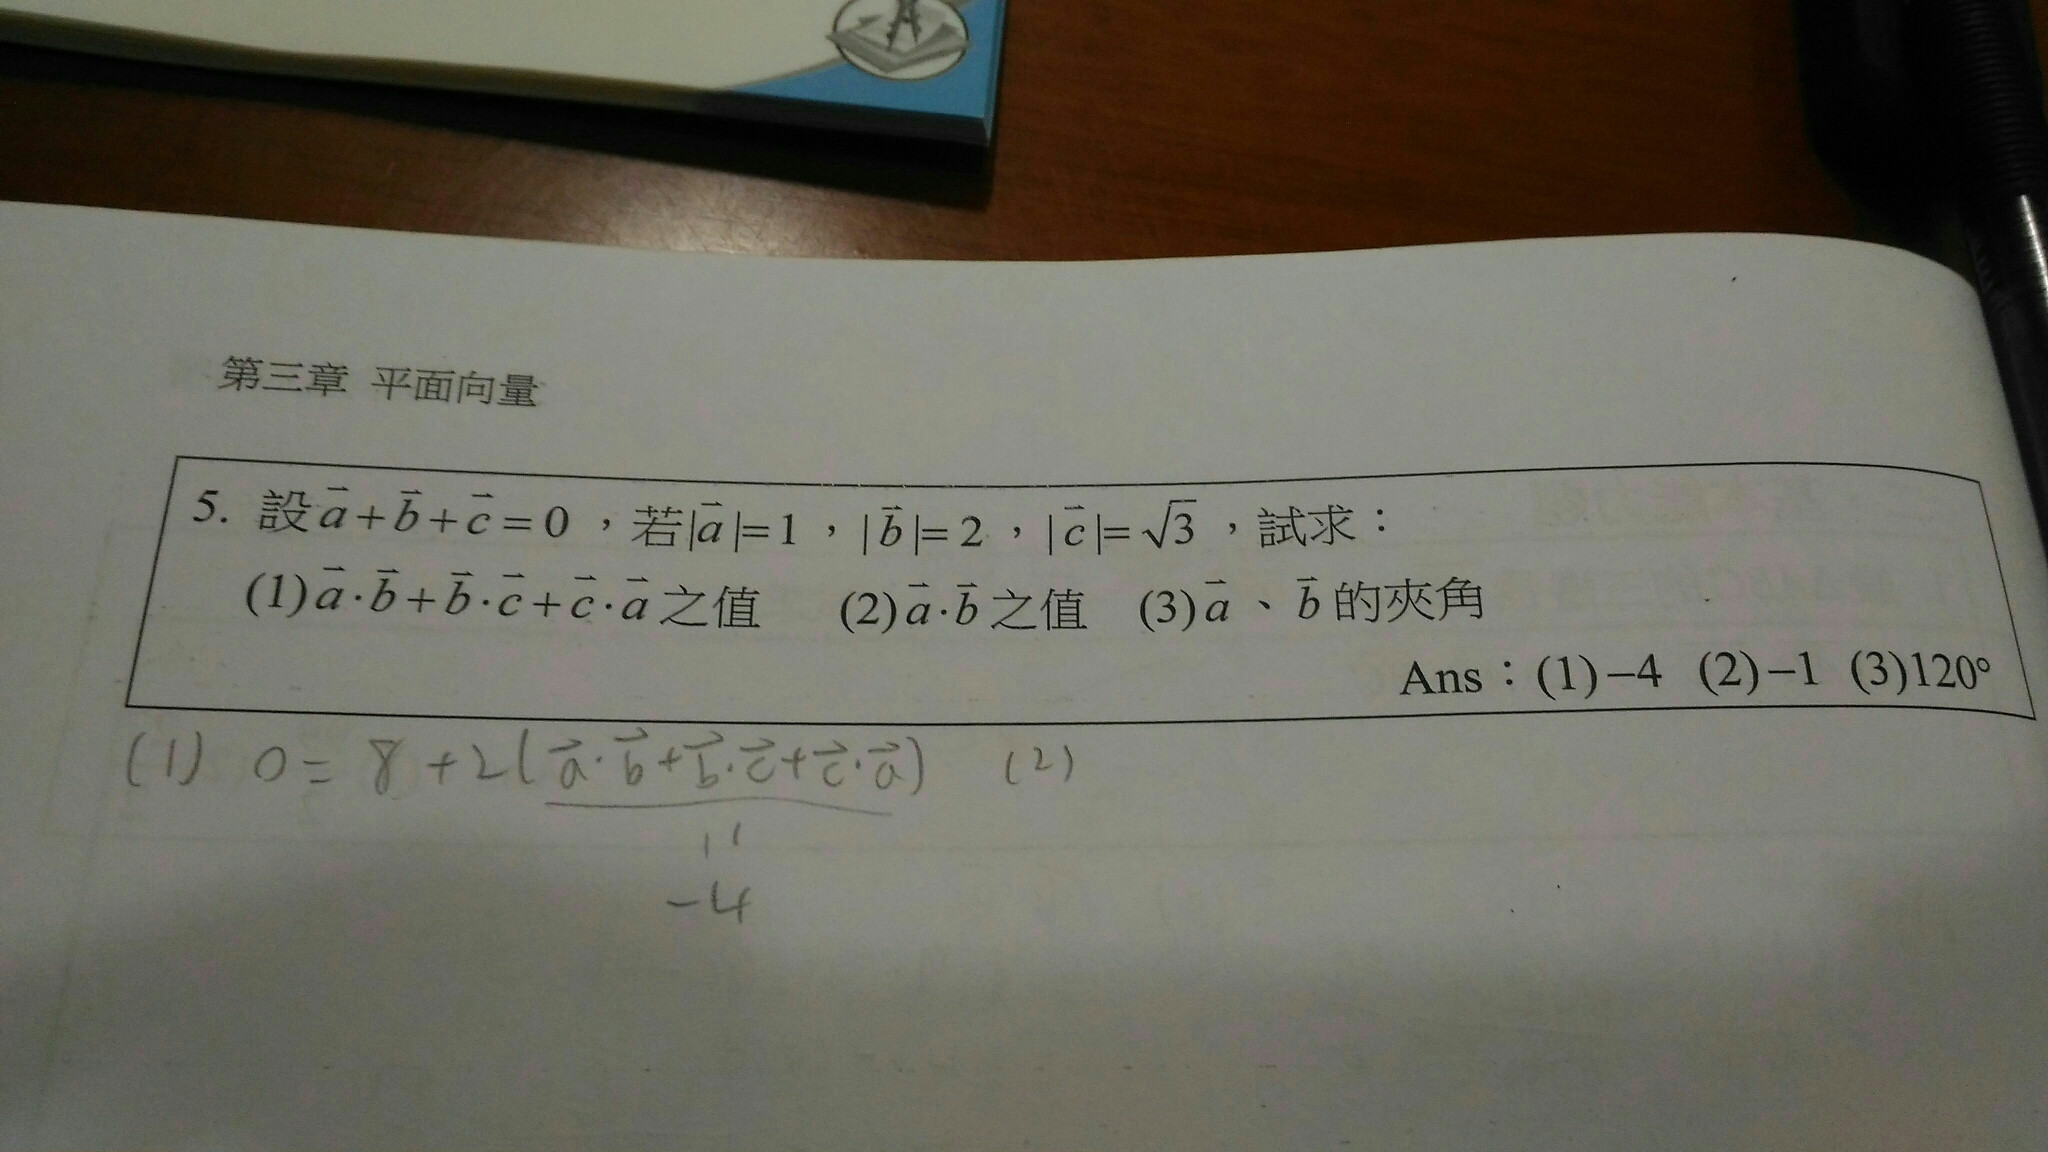 第三章 平面向量
5. 設 $\vec{a}+\vec{b}+\vec{c}=0$，若$|\vec{a}|=1$，$|\vec{b}|=2$，$|\vec{c}|=\sqrt{3}$，試求：
(1)$\vec{a}\cdot\vec{b}+\vec{b}\cdot\vec{c}+\vec{c}\cdot\vec{a}$ 之值 (2)$\vec{a}\cdot\vec{b}$ 之值 (3)$\vec{a}$、$\vec{b}$ 的夾角
Ans：(1)−4 (2)−1 (3)120°
(1) $0=8+2(\vec{a}\cdot\vec{b}+\vec{b}\cdot\vec{c}+\vec{c}\cdot\vec{a})$ (2)
−4